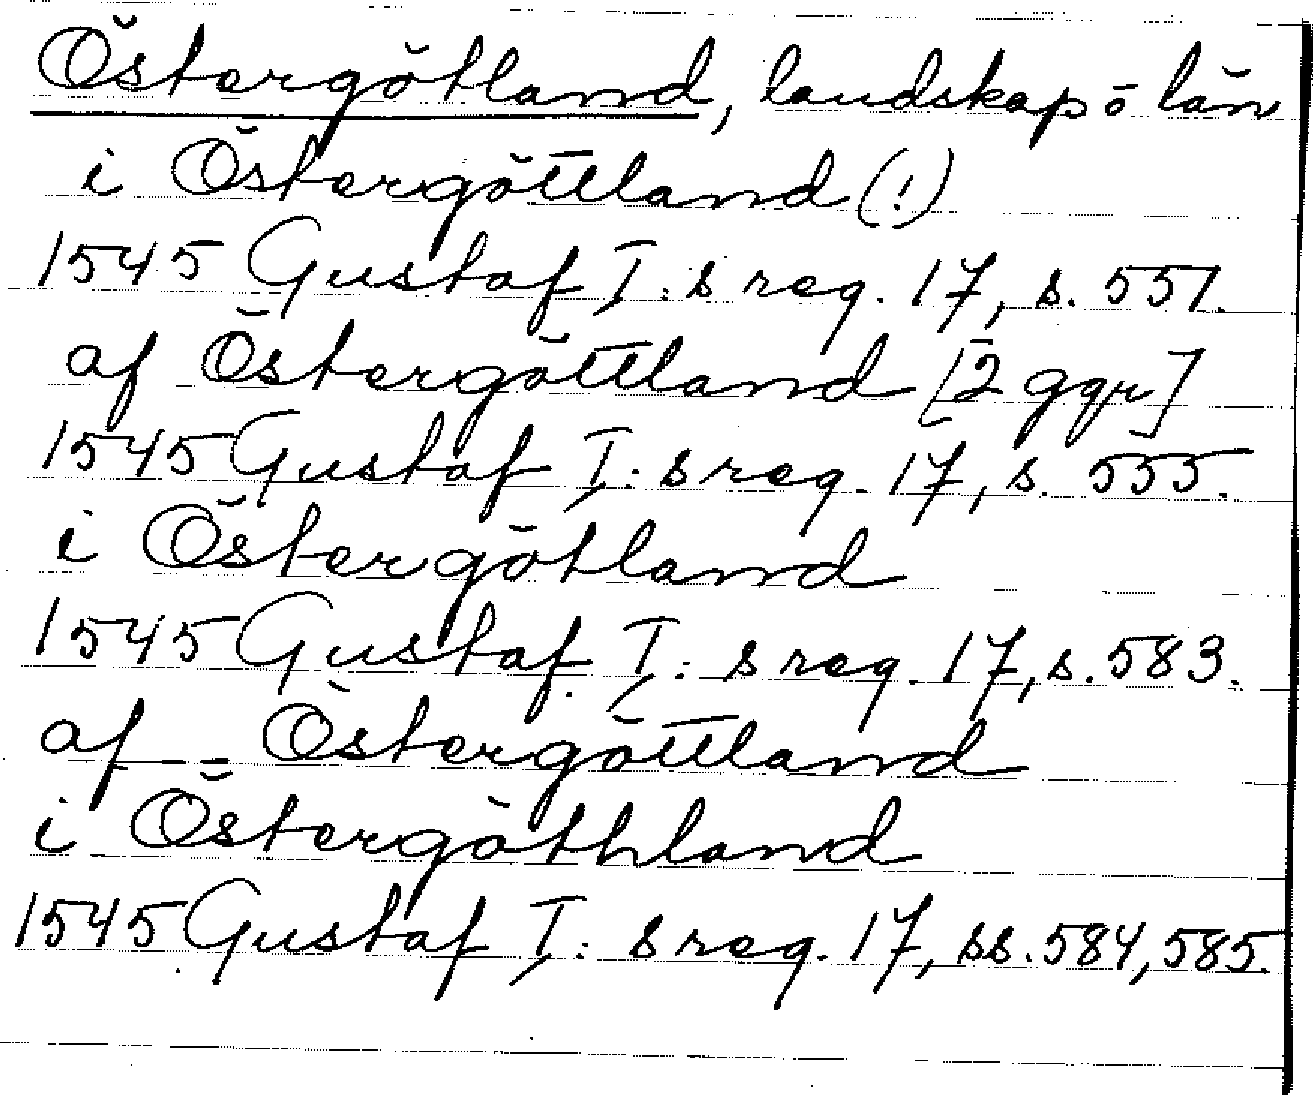 Östergötland, landskap o län
i Östergöttland (!)
1545 Gustaf I:s reg. 17, s. 551.
af Östergöttland [2 ggr]
1545 Gustaf I:s reg. 17, s. 555.
i Östergötland
1545 Gustaf I:s reg. 17, s. 583.
af Östergöttland
i Östergöthland
1545 Gustaf I:s reg. 17, ss. 584, 585.